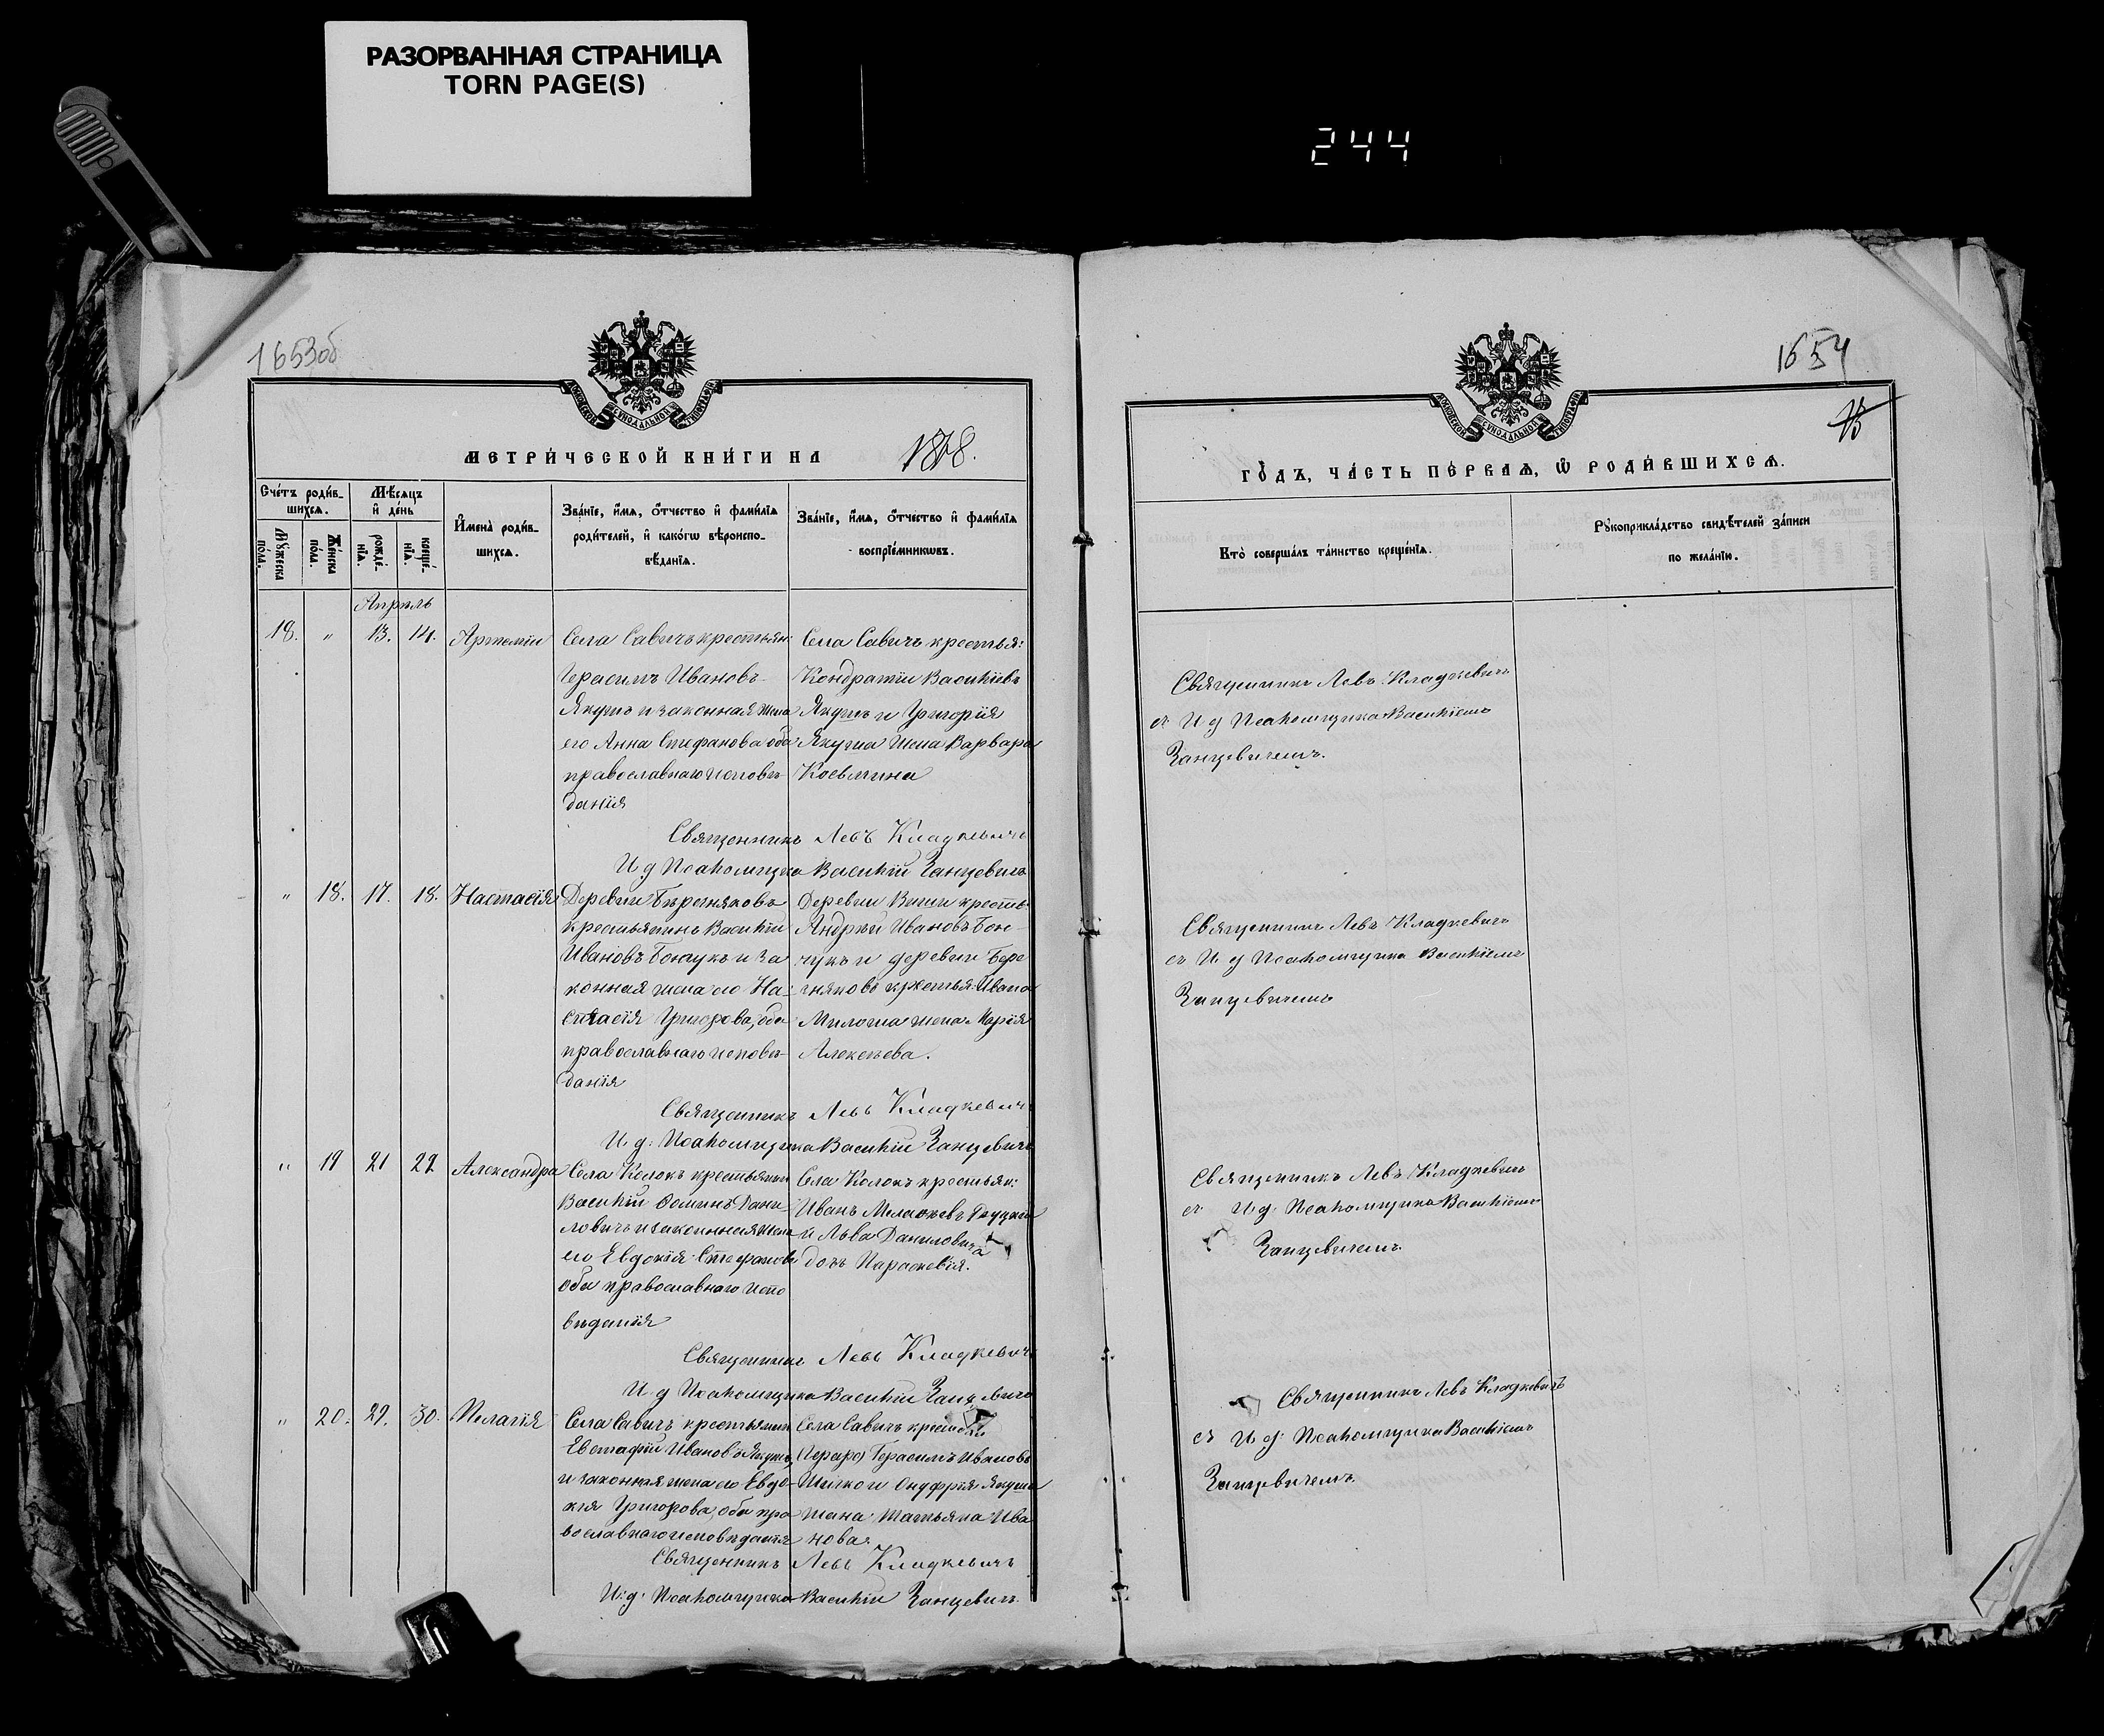 РАЗОРВАННАЯ СТРАНИЦА
TORN PAGE(S)
244
1653об
МОСКОВСКОЙ СУНОДАЛЬНОЙ ТИПОГРАФІИ
МЕТРИ́ЧЕСКОЙ КНИ́ГИ НА 1878.
Сче́тъ роди́в-
шихсѧ.
Мꙋ́жеска по́ла.
Же́нска по́ла.
Мѣ́сѧцъ
и҆ де́нь
рожде́-
нїѧ.
креще́-
нїѧ.
И҆мена̀ роди́в-
шихсѧ.
Зва́нїе, и҆́мѧ, ѻ҆́тчество и҆ фами́лїѧ
роди́телей, и҆ како́гѡ вѣроиспо-
вѣ́данїѧ.
Зва́нїе, и҆́мѧ, ѻ҆́тчество и҆ фами́лїѧ
воспрїе́мникѡвъ.
Апрѣль
18. " 13. 14. Артемій
Села Савичъ крестьян:
Герасимъ Ивановъ
Якушъ и законная жена
его Анна Стефанова оба
православнаго исповѣ-
данія
Села Савичъ крестья:
Кондратій Васильевъ
Якушъ и Григорія
Якуша жена Варвара
Козьмина
Священникъ Левъ Кладкевичъ
И д Псаломщика Василій Занцевичъ
" 18. 17. 18. Настасія
Деревни Берегняковъ
крестьянинъ Василій
Ивановъ Бончукъ и за
конная жена его На-
стасія Григорова, оба
православнаго исповѣ-
данія
Деревни крестья-
Андрей Ивановъ Бон-
чукъ и деревни Бере
гняковъ крестья: Ивана
жена Марія
Алексѣева.
Священникъ Левъ Кладкевичъ
И. д: Псаломщика Василій Занцевичъ
" 19 21 22 Александра
Села Колокъ крестьянин
Василій Ѳоминъ Дани-
ловичъ и законная жена
его Евдокія Стефанова
оба православнаго испо
вѣданія
Села Колокъ крестьян:
Иванъ
и Льва Даниловича
дочь Параскевія.
Священникъ Левъ Кладкевичъ
И д Псаломщика Василій Занцевичъ
" 20. 29. 30. Пелагія
Села Савичъ крестьянин
Евстафій Ивановъ Якушъ,
и законная жена его Евдо-
кія Григорова, оба пра
вославнаго исповѣданія
Села Савичъ
Герасимъ Ивановъ
и Онуфрія Якуша
жена Татьяна Ива
нова
Священникъ Левъ Кладкевичъ
И: д: Псаломщика Василій Занцевичъ.
1654
МОСКОВСКОЙ СУНОДАЛЬНОЙ ТИПОГРАФІИ
ГО́ДЪ, ЧА́СТЬ ПЕ́РВАѦ, Ѡ҆ РОДИ́ВШИХСѦ.
Кто̀ соверша́лъ та́инство креще́нїѧ.
Рꙋкоприкла́дство свидѣ́телей за́писи
по жела́нїю.
Священникъ Левъ Кладкевичъ
съ И д Псаломщика Василіемъ
Занцевичемъ.
Священникъ Левъ Кладкевичъ
съ И д Псаломщика Василіемъ
Занцевичемъ
Священникъ Левъ Кладкевичъ
съ И д. Псаломщика Василіемъ
Занцевичемъ
Священникъ Левъ Кладкевичъ
съ И д: Псаломщика Василіемъ
Занцевичемъ.